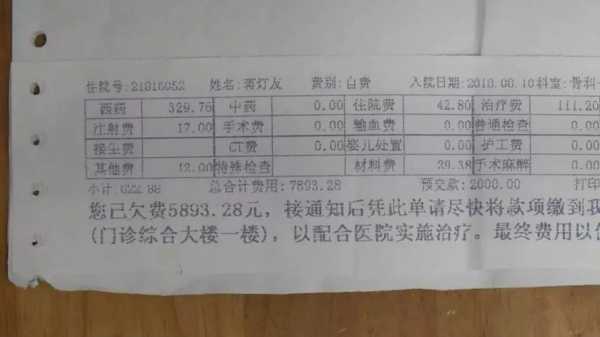 住院号:21816052 姓名:蒋灯友 费别:自费 入院日期:2018.08.10 科室:骨科
西药 329.76 中药 0.00 住院费 42.80 治疗费 111.20
注射费 17.00 手术费 0.00 输血费 0.00 普通检查
接生费 CT费 0.00 婴儿处置 0.00 护工费 0.00
其他费 12.00 特殊检查 材料费 29.38 手术麻醉 0.00
小计: 622.88 总合计费用: 7893.28 预交款: 2000.00 打印
您已欠费5893.28元，接通知后凭此单请尽快将款项缴到我
(门诊综合大楼一楼)，以配合医院实施治疗。最终费用以